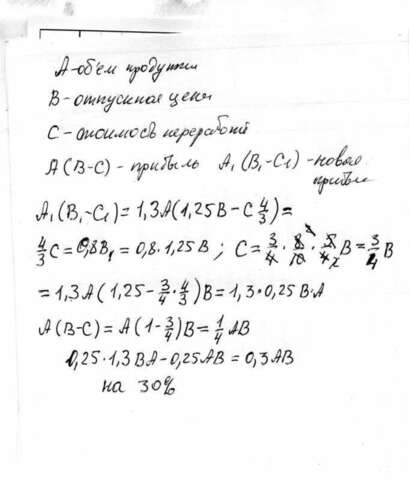 А - объем продукции
В - отпускная цена
С - стоимость переработки
А (В-С) - прибыль A₁ (B₁-C₁) - новая
прибыль
A₁(B₁-C₁) = 1,3A(1,25B - C 4/3) =
4/3 C = 0,8B₁ = 0,8·1,25B ; C = 3/4 · 8/10 · 5/4 B = 3/4 B
= 1,3A (1,25 - 3/4 · 4/3)B = 1,3·0,25 B·A
A(B-C) = A(1-3/4)B = 1/4 AB
0,25·1,3BA - 0,25AB = 0,3AB
на 30%